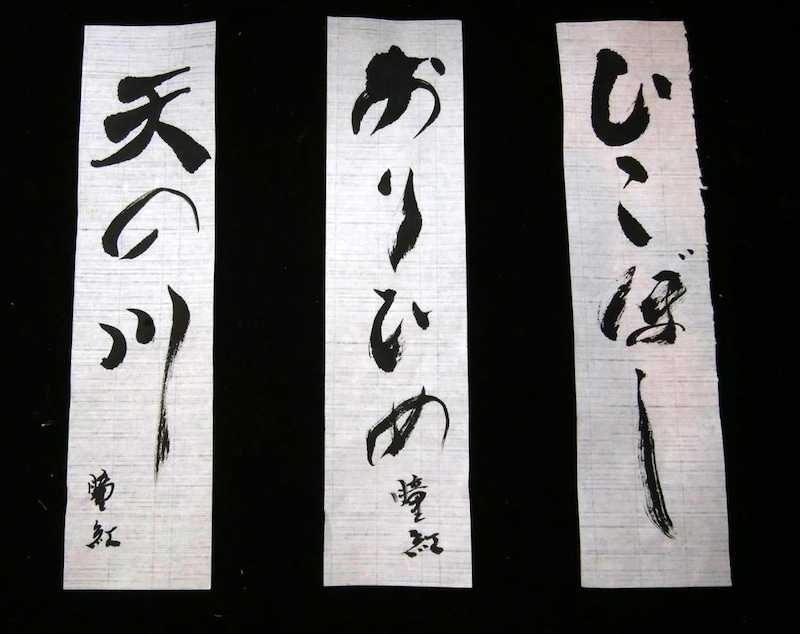 ひこぼし
おりひめ
瞳紅
天の川
瞳紅